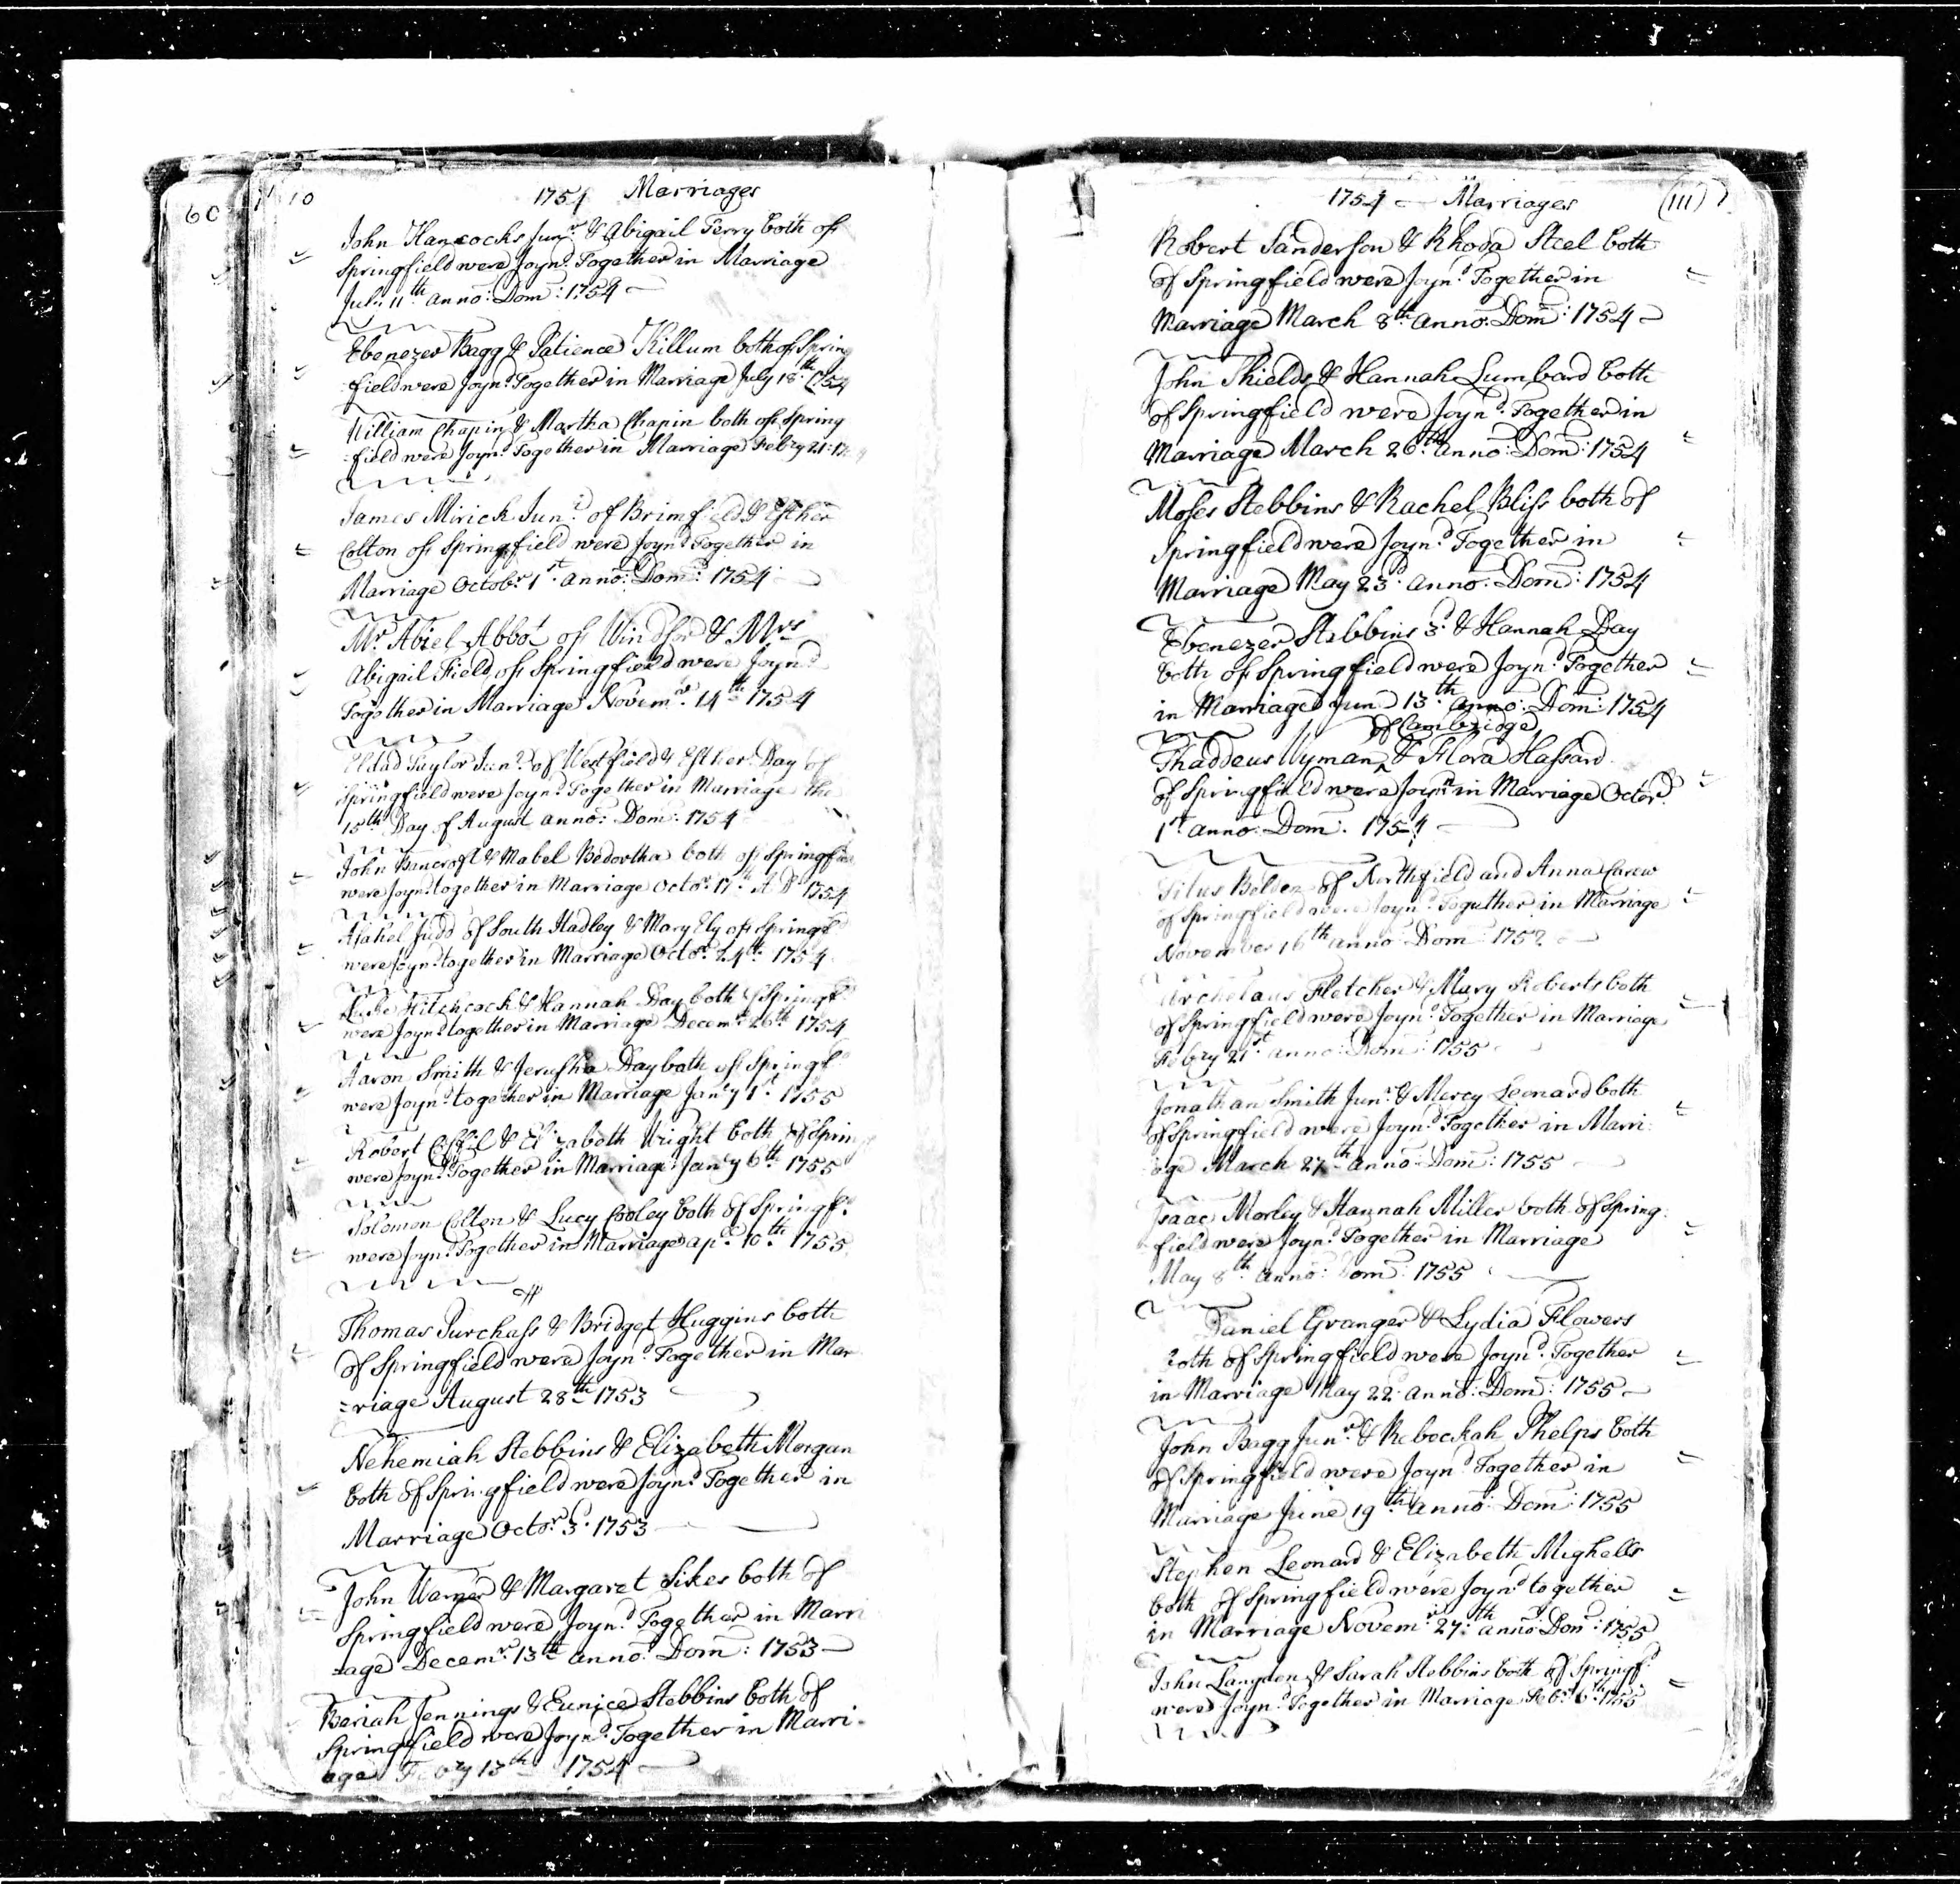 60
110
1754 Marriages
John Hancocks Junr. & Abigail Ferry both of
Springfield were Joynd. Together in Marriage
July 11th anno: Dom: 1754
Ebenezer Bagg & Patience Killum both of Spring
field were Joynd. Together in Marriage July 18th 1754
William Chapin & Martha Chapin both of Spring
=field were Joynd. Together in Marriage Febry 21: 17
James Mirick Junr. of Brimfield & Esther
Colton of Springfield were Joynd Together in
Marriage Octobr. 1st anno: Dom: 1754
Mr. Abiel Abbot of Windsor & Mrs
Abigail Field of Springfield were Joynd
Together in Marriage Novemr. 14th 1754
Eldad Taylor Junr. of Westfield & Esther Day of
Springfield were Joynd. Together in Marriage the
15th Day of August anno: Dom: 1754
John Bancroft & Mabel Bedortha both of Springfie
were Joynd. together in Marriage Octor. 17th A.D. 1754
Asahel Judd of South Hadley & Mary Ely of Springfd
were Joynd. together in Marriage Octor. 24th 1754
Hitchcock & Hannah Day both of Springfd
were Joynd. together in Marriage Decemr. 26th 1754
Aaron Smith & Jerusha Day both of Springfd
were Joynd. together in Marriage Janry 1st 1755
Robert & Elizabeth Wright both of Spring
were Joynd. Together in Marriage Janry 6th 1755
Solomon Colton & Lucy Cooley both of Springfd.
were Joynd. Together in Marriage apr. 10th 1755
Thomas Purchass & Bridget Huggins both
of Springfield were Joynd. Together in Mar
=riage August 28th 1753
Nehemiah Stebbins & Elizabeth Morgan
both of Springfield were Joynd. Together in
Marriage Octor. 3d. 1753
John Warner & Margaret Sikes both of
Springfield were Joynd. Together in Marri
=age Decemr. 13th anno: Dom: 1753
Beriah Jennings & Eunice Stebbins both of
Springfield were Joynd. Together in Marri-
age Febry 13th 1754
1754 Marriages (111)
Robert Sanderson & Rhoda Steel both
of Springfield were Joynd. Together in
Marriage March 8th anno: Dom: 1754
John Shields & Hannah Lumbard both
of Springfield were Joynd. Together in
Marriage March 26th anno: Dom: 1754
Moses Stebbins & Rachel Bliss both of
Springfield were Joynd. Together in
Marriage May 23d. anno: Dom: 1754
Ebenezer Stebbins 3d. & Hannah Day
both of Springfield were Joynd. Together
in Marriage June 13th anno: Dom: 1754
of Cambridge
Thaddeus Wyman ^ & Flora Hassard
of Springfield were Joynd in Marriage Octobr.
1st anno: Dom: 1754
Titus Bolden of Northfield and Anna Carew
of Springfield were Joynd. Together in Marriage
November 16th anno: Dom: 1752
Archelaus Fletcher & Mary Roberts both
of Springfield were Joynd. Together in Marriage
Febry 21st anno: Dom: 1755
Jonathan Smith Junr. & Mercy Leonard both
of Springfield were Joynd. Together in Marri:
age March 27th anno: Dom: 1755
Isaac Morley & Hannah Miller both of Spring:
field were Joynd. Together in Marriage
May 8th anno: Dom: 1755
Daniel Granger & Lydia Flowers
both of Springfield were Joynd. Together
in Marriage May 22d anno: Dom: 1755
John Bagg Junr. & Rebeckah Phelps both
of Springfield were Joynd. Together in
Marriage June 19th anno: Dom: 1755
Stephen Leonard & Elizabeth Mighells
both of Springfield were Joynd together
in Marriage Novemr 27th anno: Dom: 1755
John Langden & Sarah Stebbins both of Springfd.
were Joynd. Together in Marriage Febr. 6th 1755